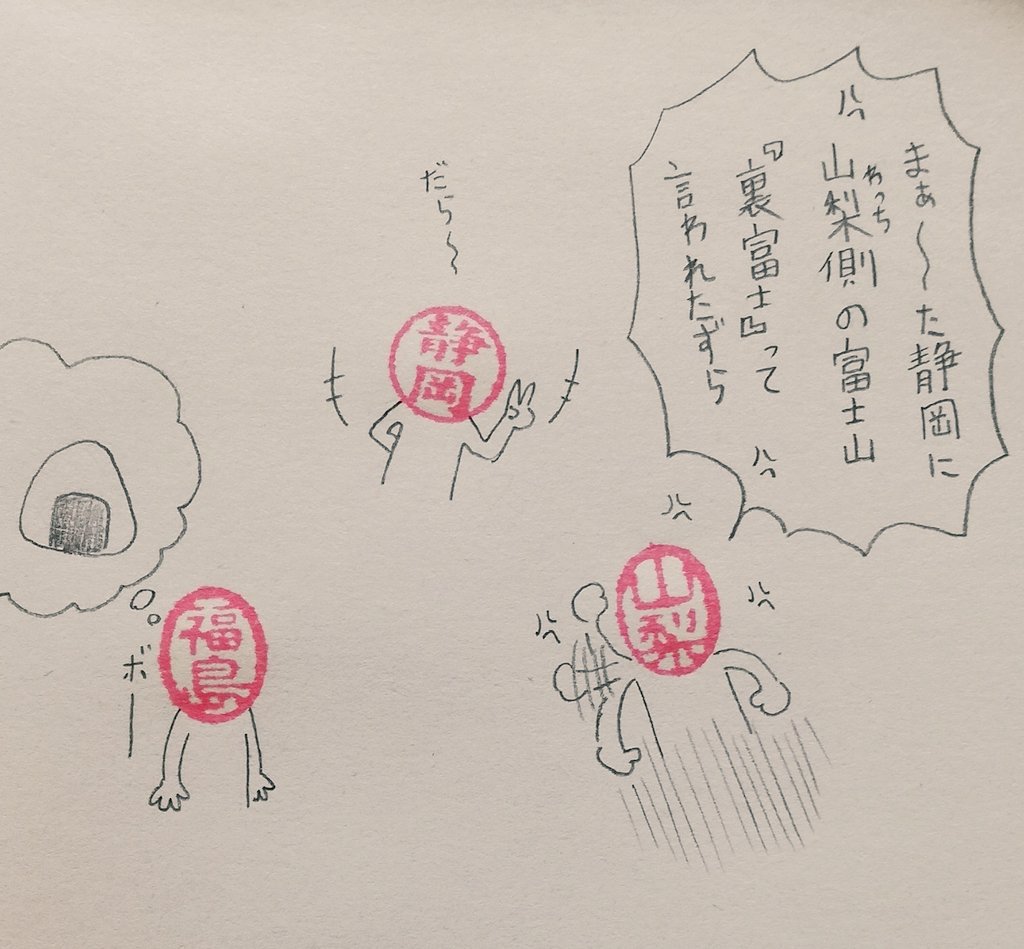 まぁ〜た静岡に
山梨側の富士山
わっち
『裏富士』って
言われたずら
だら〜
静岡
山梨
福島
ボー